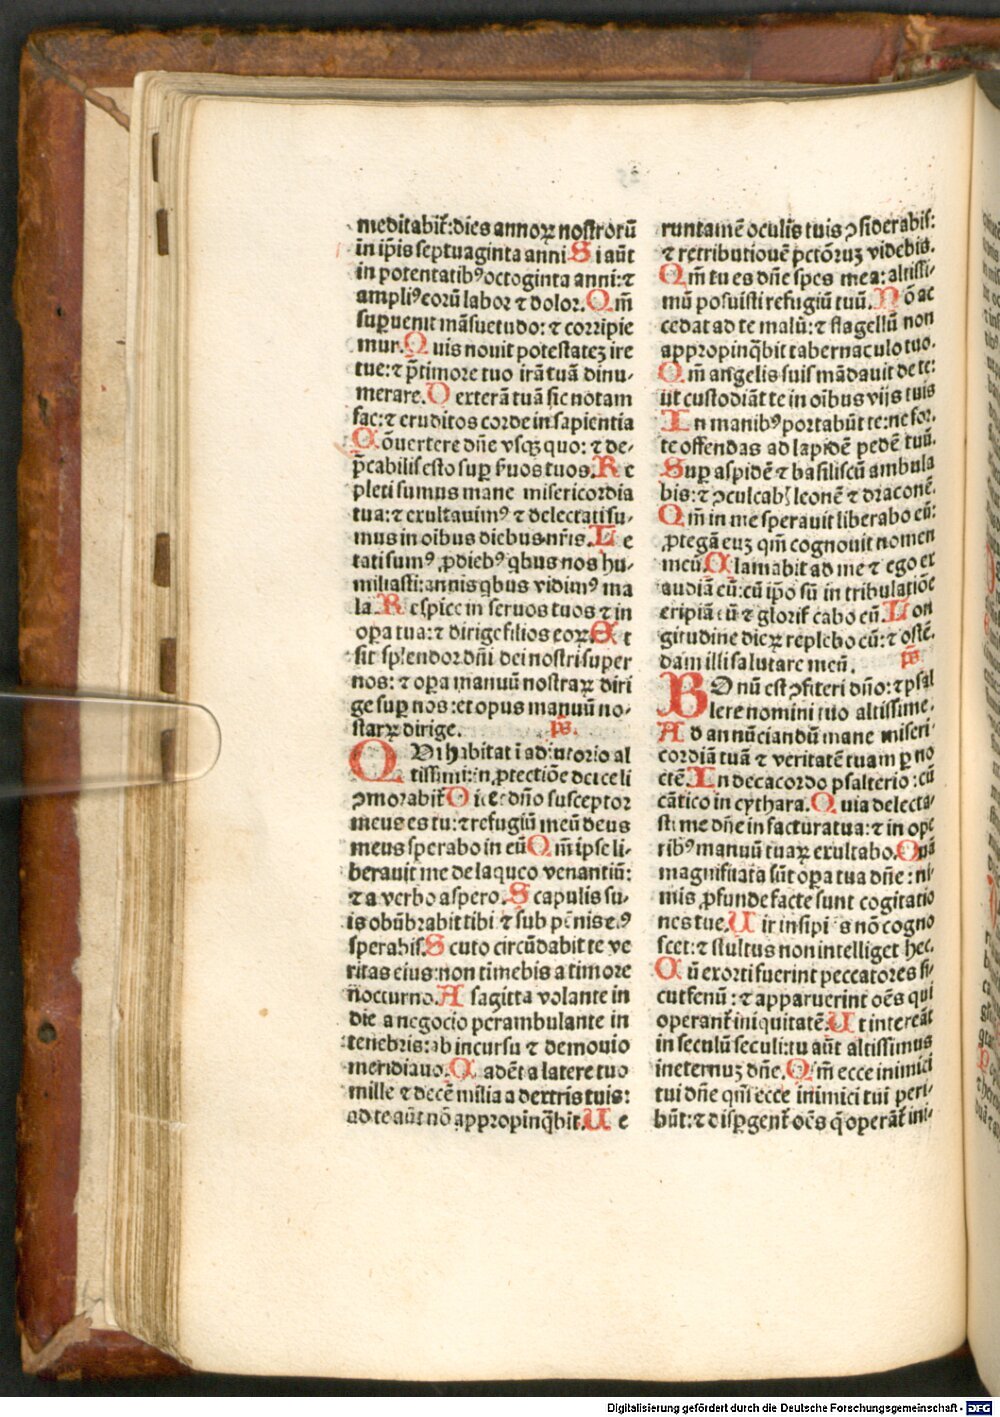 meditabit᷑:dies annoꝝ nostrorū
in ip̄is septuaginta anni Si aūt
in potentatibꝰ octoginta anni:⁊
ampliꝰ eorū labor ⁊ dolor. Qm̄
supuenit māsuetudo:⁊ corripie
mur. Quis nouit potestatez ire
tue:⁊ p̄timore tuo irā tuā dinu-
merare. Dexterā tuā sic notam
fac:⁊ eruditos corde in sapientia
Cōuertere dn̄e vsqꝫ quo:⁊ de-
p̄cabilis esto sup ẜuos tuos. Re
pleti sumus mane misericordia
tua:⁊ exultauimꝰ ⁊ delectati su-
mus in oibus diebus nr̄is. Le
tati sumꝰ ꝓ diebꝰ qbus nos hu-
miliasti:annis qbus vidimꝰ ma
la. Respice in seruos tuos ⁊ in
oꝑa tua:⁊ dirige filios eoꝝ. Et
sit splendor dn̄i dei nostri super
nos:⁊ oꝑa manuū nostraꝝ diri
ge suꝑ nos:et opus manuū no-
straꝝ dirige. ps.
QUi habitat ī adiutorio al
tissimi:in ꝓtectiōe dei celi
ꝯmorabit᷑ Dicet dn̄o susceptor
meus es tu:⁊ refugiū meū deus
meus sperabo in eū Qm̄ ipse li-
berauit me de laqueo venantiū:
⁊ a verbo aspero. Scapulis su-
is obūbrabit tibi ⁊ sub pēnis eꝰ
sperabis. Scuto circūdabit te ve
ritas eius:non timebis a timore
nocturno. A sagitta volante in
die a negocio perambulante in
tenebris:ab incursu ⁊ demonio
meridiano. Cadēt a latere tuo
mille ⁊ decē milia a dextris tuis:
ad te aūt nō appropinq̄bit. Ue
runtamē oculis tuis ꝯsiderabis:
⁊ retributionē pctōruꝫ videbis.
Qm̄ tu es dn̄e spes mea:altissi-
mū posuisti refugiū tuū. Nō ac
cedat ad te malū:⁊ flagellū non
appropinq̄bit tabernaculo tuo.
Qm̄ angelis suis mādauit de te:
ut custodiāt te in oibus vijs tuis
In manibꝰ portabūt te:ne for-
te offendas ad lapidē pedē tuū.
Suꝑ aspidē ⁊ basiliscū ambula
bis:⁊ ꝯculcabꝭ leonē ⁊ draconē.
Qm̄ in me sperauit liberabo eū:
ꝓtegā euꝫ qm̄ cognouit nomen
meū. Clamabit ad me ⁊ ego ex
audiā eū:cū ip̄o sū in tribulatiōe
eripiā eū ⁊ glorificabo eū. Lon
gitudine dieꝝ replebo eū:⁊ ostē-
dam illi salutare meū. ps.
BOnū est ꝯfiteri dn̄o:⁊ psal
lere nomini tuo altissime.
Ad annūciandū mane miseri
cordiā tuā ⁊ veritatē tuam ꝑ no
ctē. In decacordo psalterio:cū
cātico in cythara. Quia delecta-
sti me dn̄e in factura tua:⁊ in ope
ribꝰ manuū tuaꝝ exultabo. Quā
magnificata sūt oꝑa tua dn̄e:ni-
mis ꝓfunde facte sunt cogitatio
nes tue. Uir insipiēs nō cogno
scet:⁊ stultus non intelliget hec.
Cū exorti fuerint peccatores si-
cut fenū:⁊ apparuerint oēs qui
operant᷑ iniquitatē. Ut intereāt
in seculū seculi:tu aūt altissimus
in eternuꝫ dn̄e. Qm̄ ecce inimici
tui dn̄e qm̄ ecce inimici tui peri-
būt:⁊ disꝑgent᷑ oēs q̇ operāt᷑ ini-
Digitalisierung gefördert durch die Deutsche Forschungsgemeinschaft - DFG